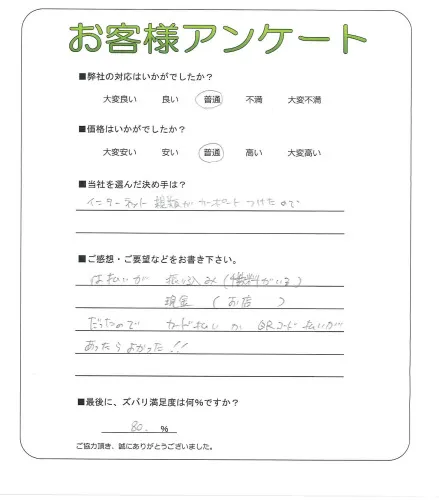 お客様アンケート
■弊社の対応はいかがでしたか?
大変良い 良い 普通 不満 大変不満
■価格はいかがでしたか?
大変安い 安い 普通 高い 大変高い
■当社を選んだ決め手は?
インターネット 種類が カーポート つけたので
■ご感想・ご要望などをお書き下さい。
は払いが 振り込み(手数料がいる)
現金 (お店 )
だったので カード払い か QRコード払いが
あったらよかった!!
■最後に、ズバリ満足度は何%ですか?
80. %
ご協力頂き、誠にありがとうございました。